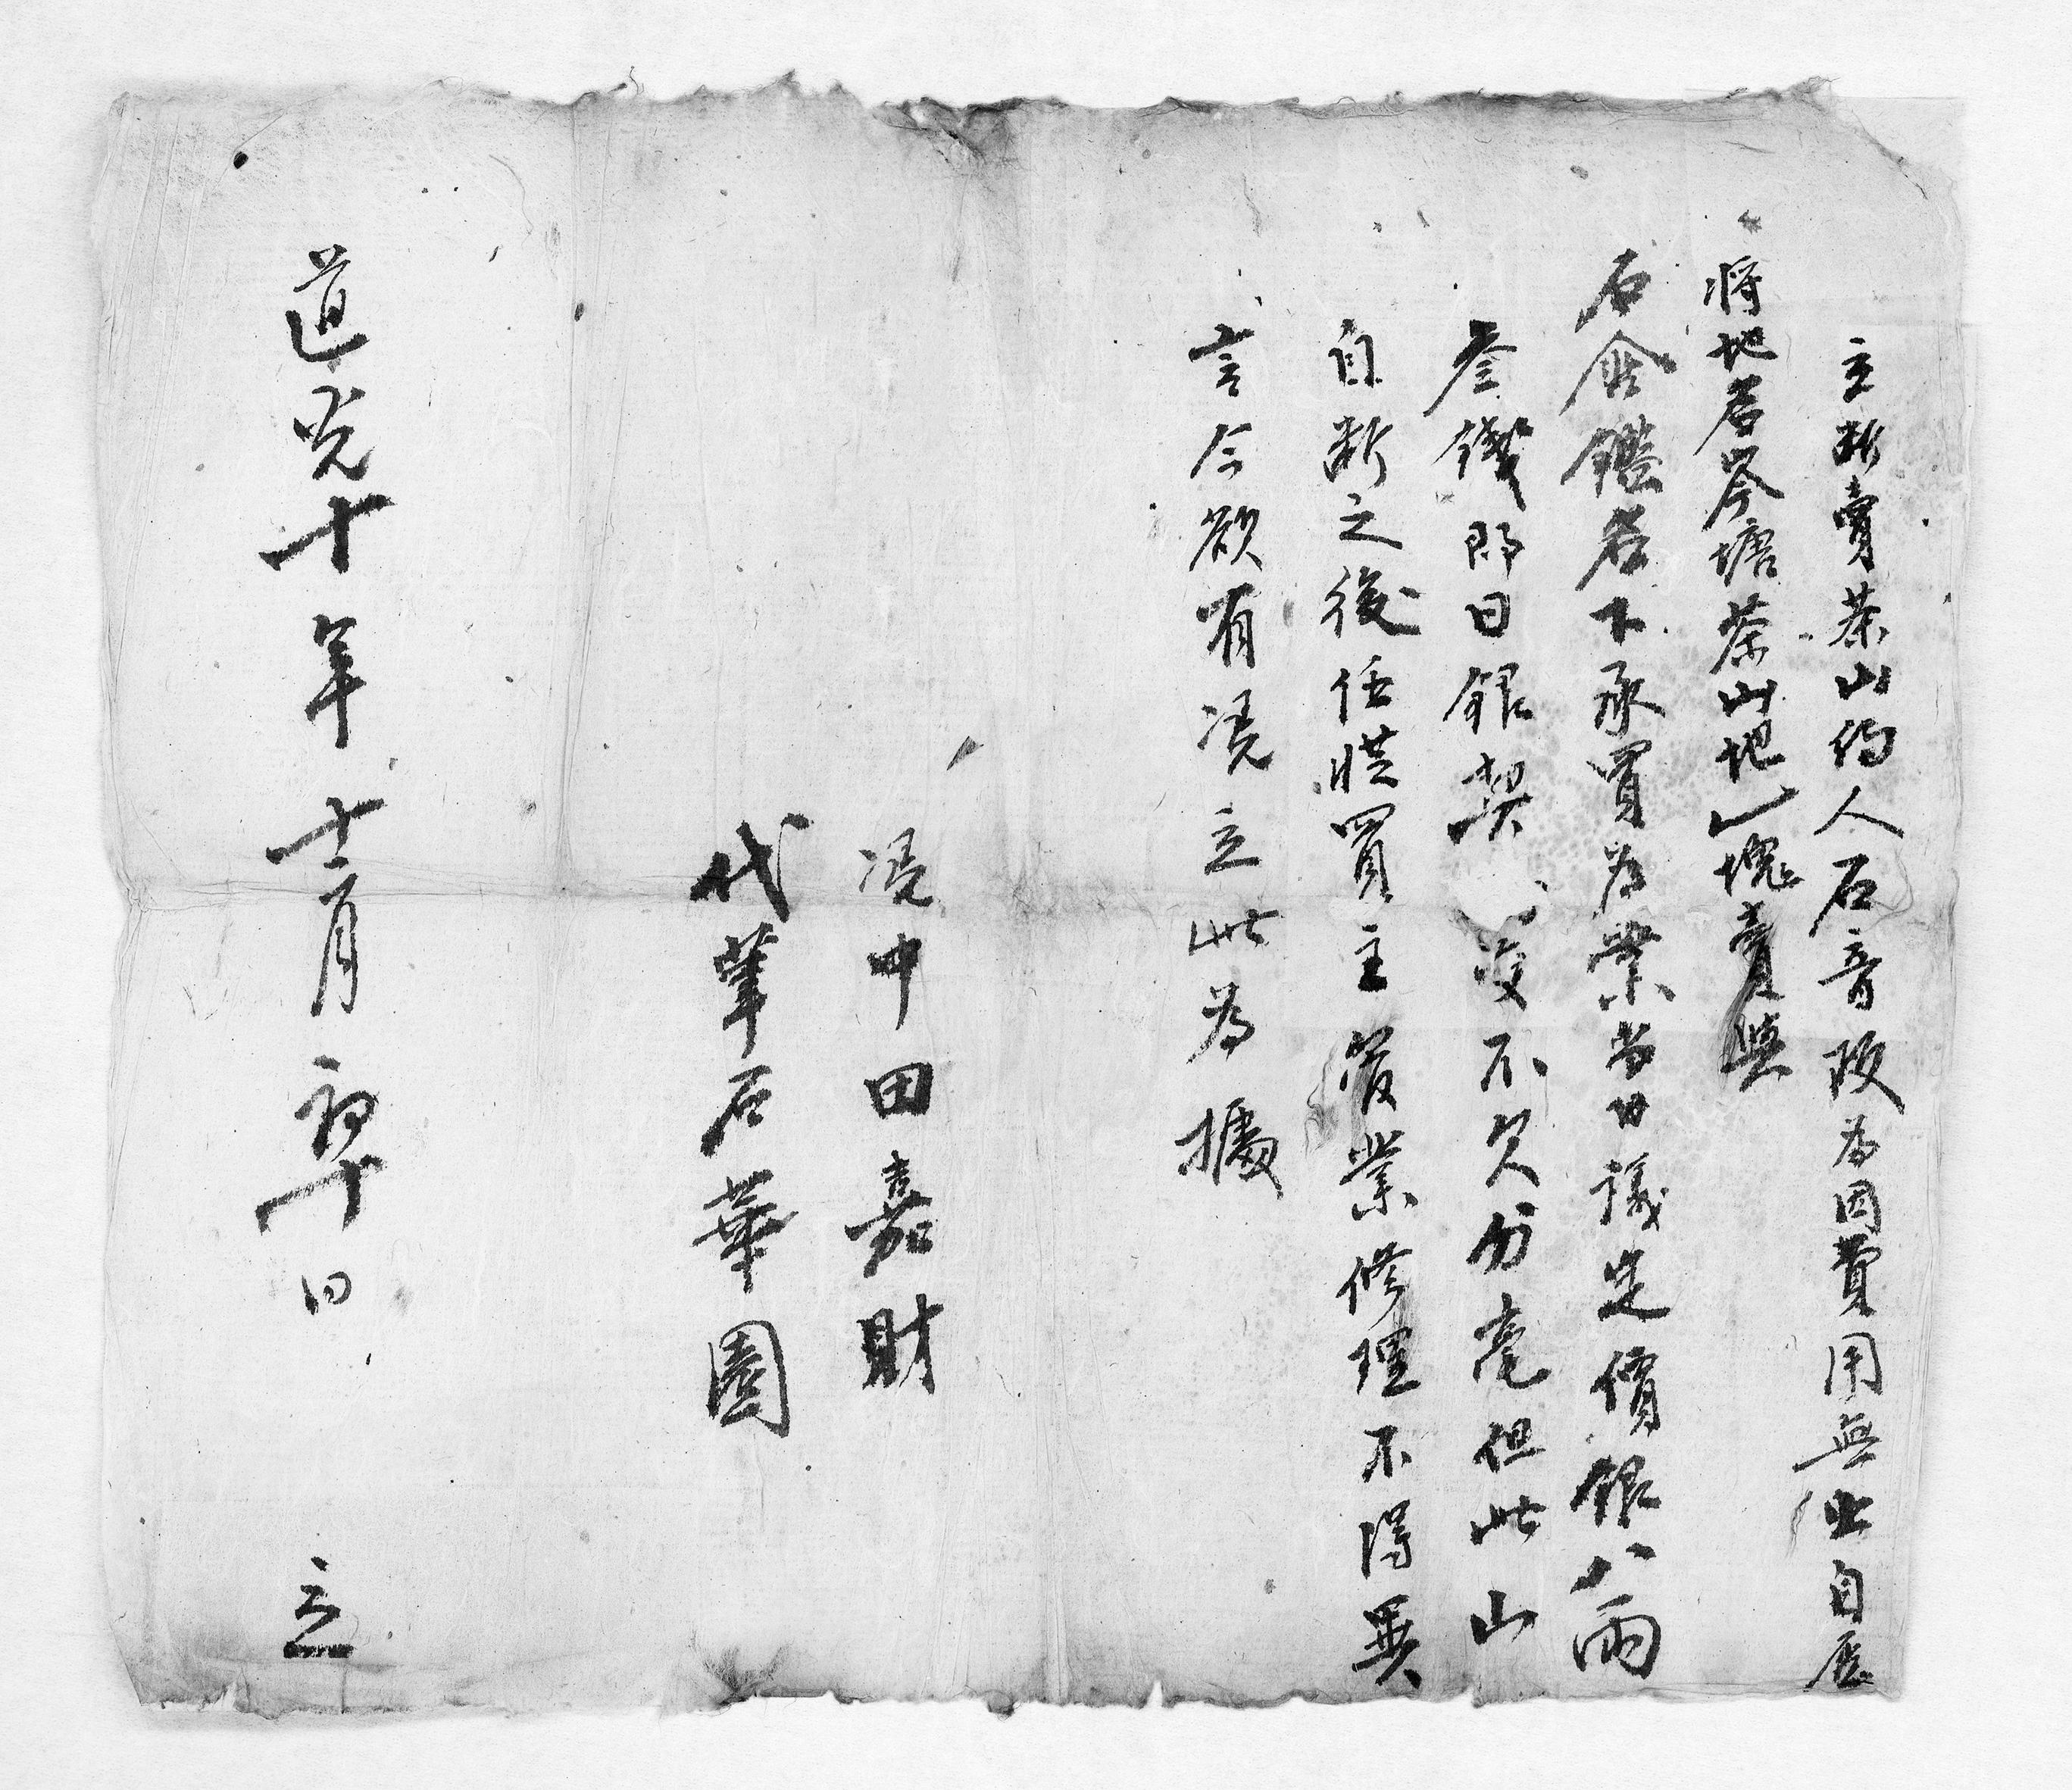 立断賣茶山約人石音改為因費用無出自愿
將地名岑塘茶山地一塊賣與
石 鑑名下承買為業當日議定價銀八両
叁錢即日銀契 不欠分毫但此山
自断之後任憑買主管業修理不得異
言今欲有凴立此為據
凴中田嘉財
代筆石華國
道光十年十二月初十日 立